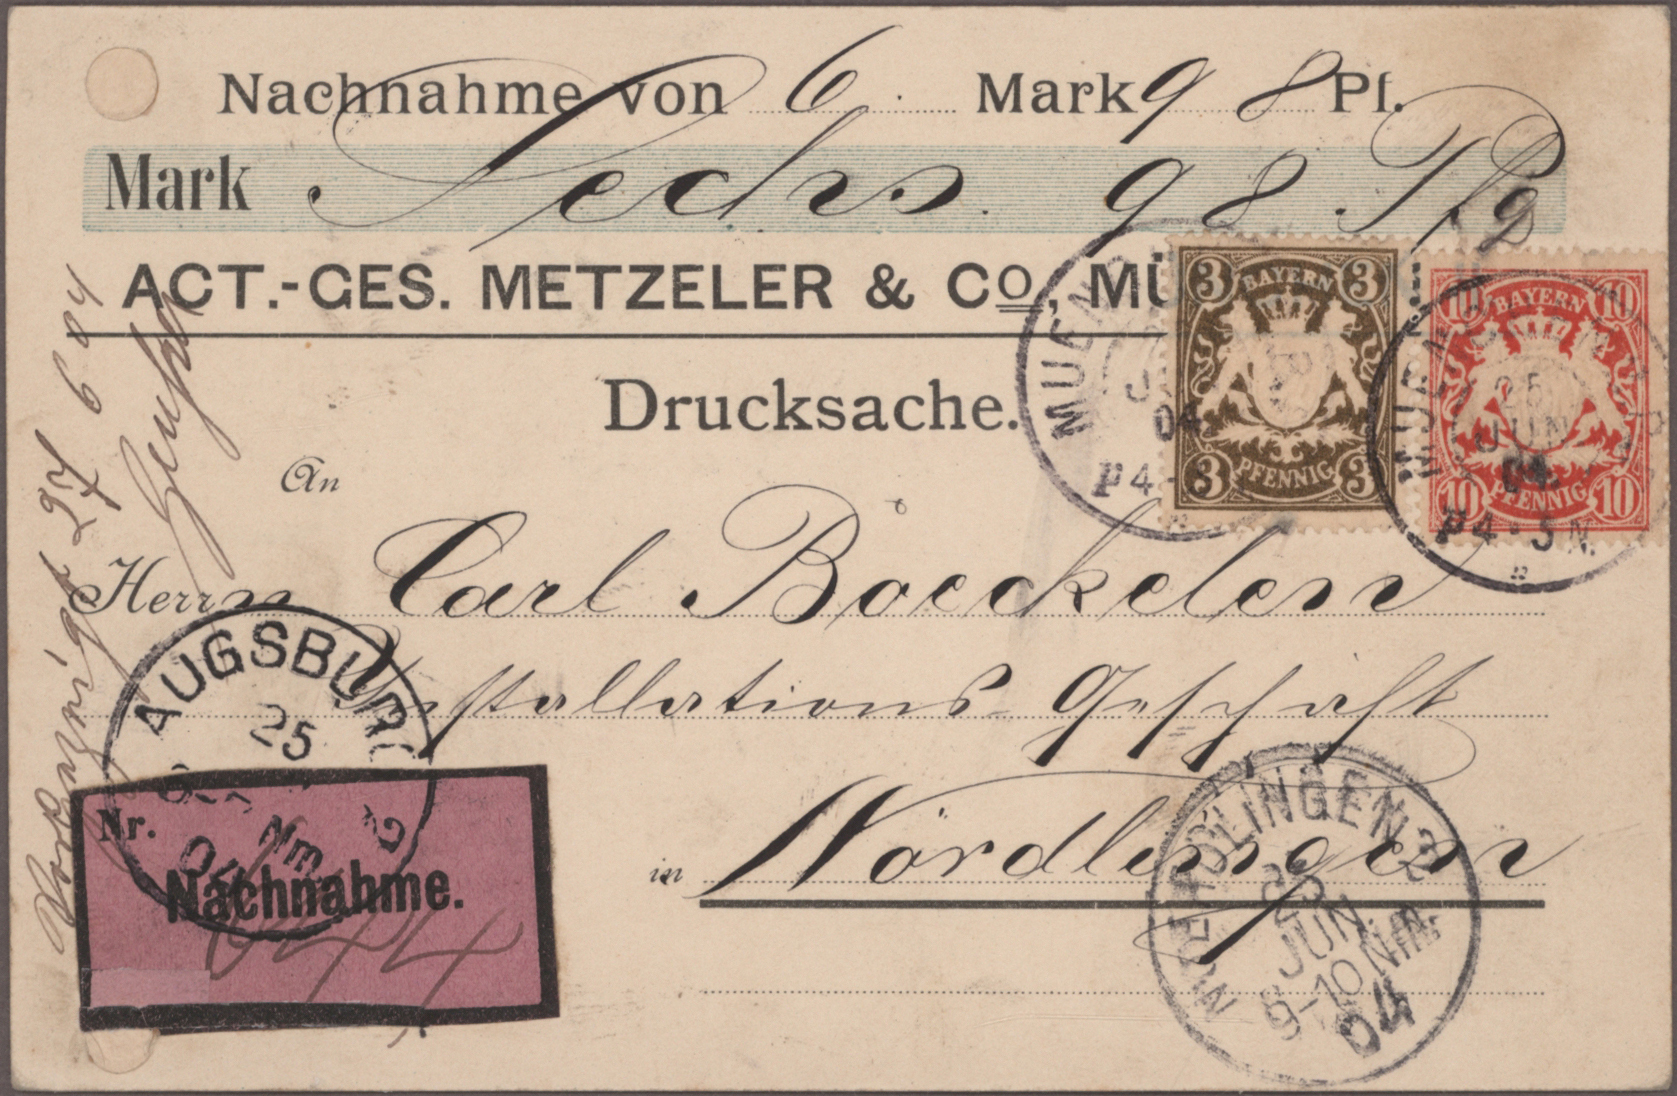 Nachnahme von 6 Mark 98 Pf.
Mark Sechs 98 Pfg
ACT.-GES. METZELER & Co, MÜ
3 BAYERN 3
3 PFENNIG 3
10 BAYERN 10
10 PFENNIG 10
MUEN
04
P 4-
25
JUN
04
P 4-5 N.
Drucksache.
An
Herrn Carl Boeckeler
Installations-Geschäft
in Nördlingen
AUGSBURG 2
25
Nm
Nr.
Nachnahme.
NOERDLINGEN 2
25
JUN
9-10 Nm
04
Vorgezeigt 27 6 04